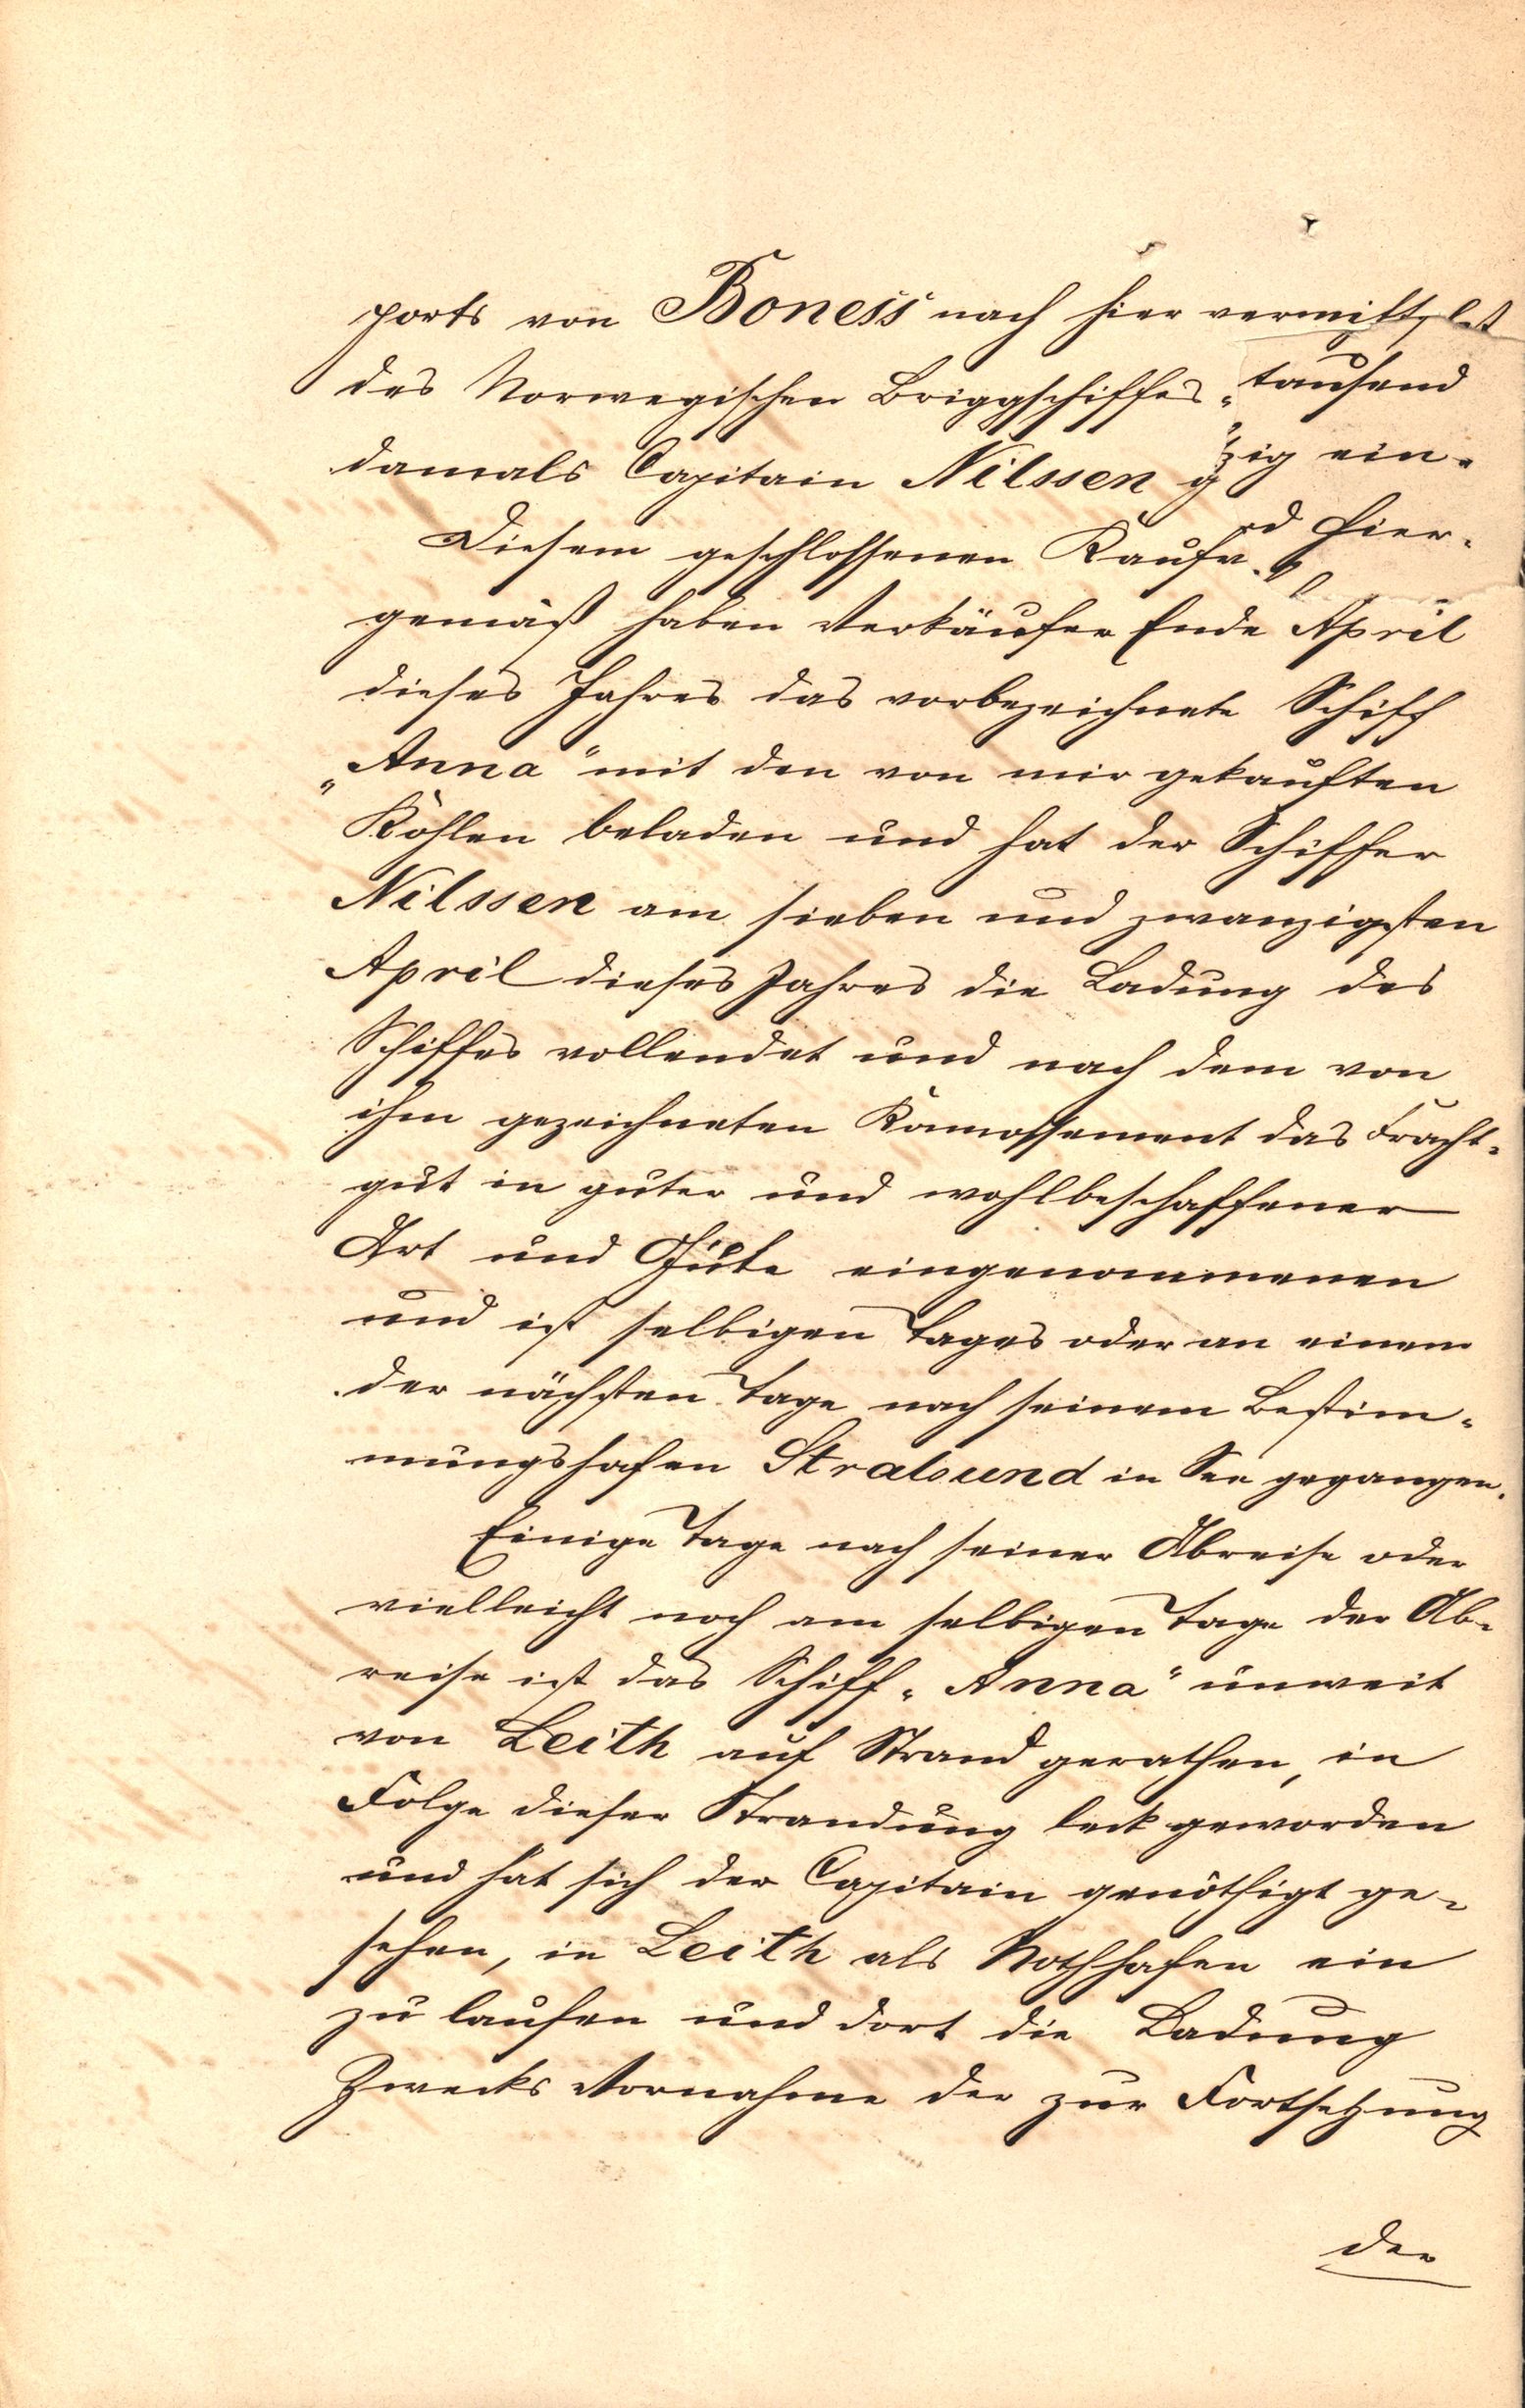 ports von Boness nach hier vermittelst
des Norwegischen Briggschiffes „ tausend
damals Capitain Nilssen g zig ein-
Diesem geschlossenen Kaufv d hier-
gemäß haben Verkäufer Ende April
dieses Jahres das vorbezeichnete Schiff
„Anna“ mit den von mir gekauften
Kohlen beladen und hat der Schiffer
Nilssen am sieben und zwanzigsten
April dieses Jahres die Ladung des
Schiffes vollendet und nach dem von
ihm gezeichneten Konnossement das Fracht-
gut in guter und wohlbeschaffener
Art und Güte eingenommenen
und ist selbigen Tages oder an einem
der nächsten Tage nach seinem Bestim-
mungshafen Stralsund in See gegangen.
Einige Tage nach seiner Abreise oder
vielleicht noch am selbigen Tage der Ab-
reise ist das Schiff „Anna“ unweit
von Leith auf Strand gerathen, in
Folge dieser Strandung leck geworden
und hat sich der Capitain genöthigt ge-
sehen, in Leith als Nothhafen ein
zu laufen und dort die Ladung
Zwecks Vornahme der zur Fortsetzung
der